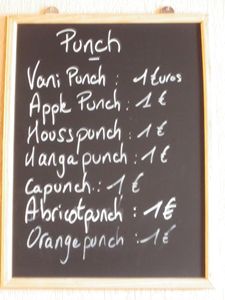 Punch
Vani Punch : 1 Euros
Apple Punch : 1 €
Housspunch : 1 €
Mangapunch : 1 €
capunch : 1 €
Abricotpunch : 1 €
Orangepunch : 1 €